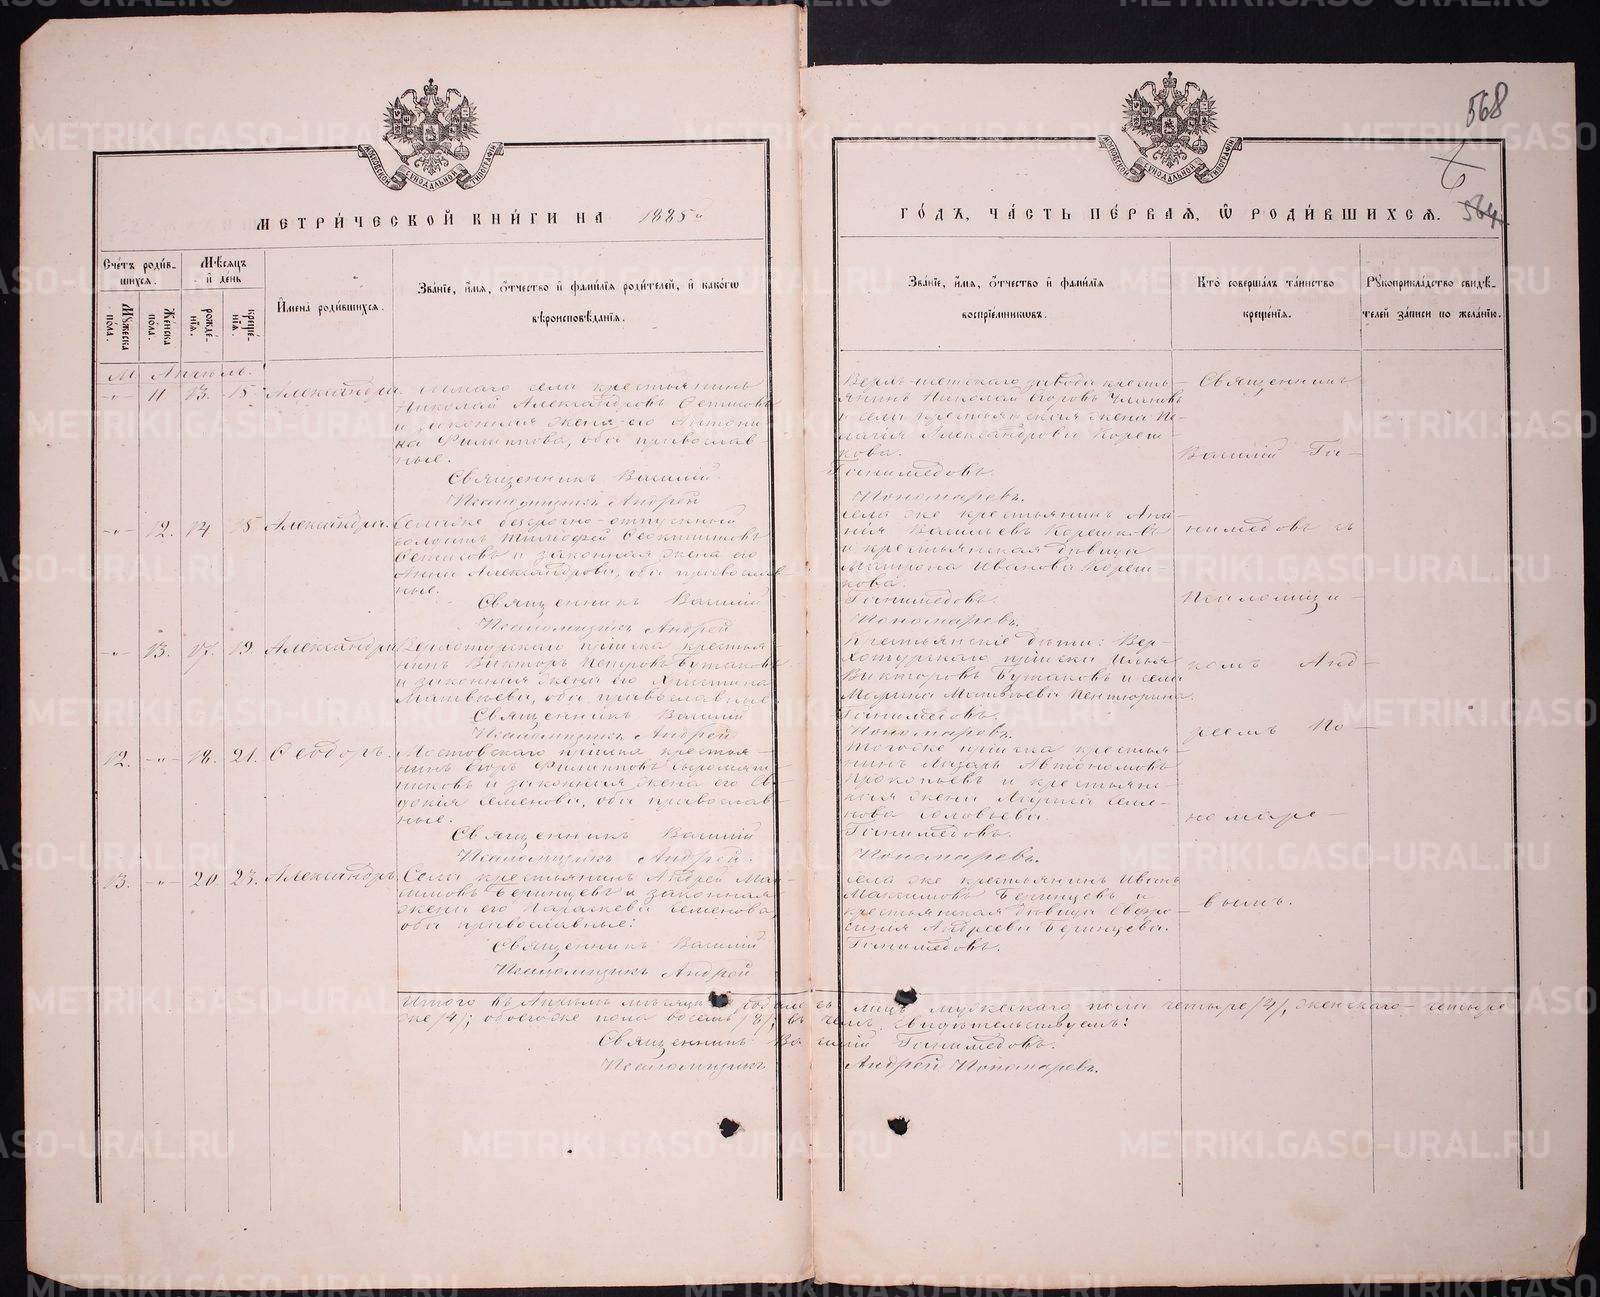 568
МЕТРИ́ЧЕСКОЙ КНИ́ГИ НА 1885й
ГО́ДЪ, ЧА́СТЬ ПЕ́РВАЯ, Ѿ РОДИ́ВШИХСЯ.
564
Сче́тъ роди́вшихся.
Му́жеска по́ла.
Же́нска по́ла.
Мѣ́сяцъ и де́нь
рожде́нія.
креще́нія.
Имена̀ роди́вшихся.
Зва́нїе, и́мя, о́тчество и фами́лїя роди́телей, и како́гѡ
вѣроисповѣ́данїя.
Зва́нїе, и́мя, о́тчество и фами́лїя
воспрїе́мникѡвъ.
Кто̀ соверша́лъ та́инство
креще́нїя.
Рꙋкоприкла́дство свидѣ́-
телей за́писи по жела́нїю.
М. Апрѣль.
-„- 11 13. 15. Александра
села крестьянинъ
Николай Александровъ
и законная жена его Антони-
на Филиппова, оба православ
ные.
Священникъ Василій
Псаломщикъ Андрей
завода кресть-
янинъ Николай Егоровъ
и села крестьянская жена Пе-
лагія Александрова Кореш-
кова.
Ганимедовъ.
Пономаревъ.
-„- 12. 14 15 Александра.
Села же безсрочно-отпускной
Тимофей
и законная жена его
Анна Александрова, оба православ-
ные.
Священникъ Василій
Псаломщикъ Андрей
Села же крестьянинъ Ана-
нія Васильевъ Корешковъ
и крестьянская дѣвица
Матрона Иванова Кореш-
кова.
Ганимедовъ.
Пономаревъ.
-„- 13. 17. 19. Александра
Верхотурскаго пріиска крестья-
нинъ Викторъ Петровъ Бутаковъ
и законная жена его Христина
Матвѣева, оба православные.
Священникъ Василій
Псаломщикъ Андрей
Крестьянскіе дѣти: Вер-
хотурскаго пріиска Илья
Викторовъ Бутаковъ и села
Марина Матвѣева Пентюрина.
Ганимедовъ.
Пономаревъ.
12. -„- 18. 21. Ѳеодоръ.
пріиска крестья-
нинъ Егоръ Филипповъ Сыромят-
никовъ и законная жена его Ев-
докія Семенова, оба православ-
ные.
Священникъ Василій
Псаломщикъ Андрей.
Тогоже пріиска крестья-
нинъ Лазарь Автономовъ
Прокопьевъ и крестьянс-
кая жена Семе-
нова Соловьева.
Ганимедовъ.
Пономаревъ.
13. -„- 20. 23. Александръ
Села крестьянинъ Андрей Мак-
симовъ Беринцевъ и законная
жена его Параскева Семенова,
оба православные:
Священникъ Василій
Псаломщикъ Андрей
Села же крестьянинъ Иванъ
Максимовъ Беринцевъ и
крестьянская дѣвица Евфро-
синія Андреева Беринцева.
Ганимедовъ.
Священникъ
Василій Га-
нимедовъ съ
Псаломщи-
комъ Анд-
реемъ По-
номаре-
вымъ.
Итого въ Апрѣлѣ мѣсяцѣ лицъ мужескаго пола четыре /4/, женскаго - четыре
же /4/; обоегоже пола восемь /8/; въ чемъ свидѣтельствуемъ:
Священникъ Василій Ганимедовъ.
Псаломщикъ Андрей Пономаревъ.
METRIKI.GASO-URAL.RU